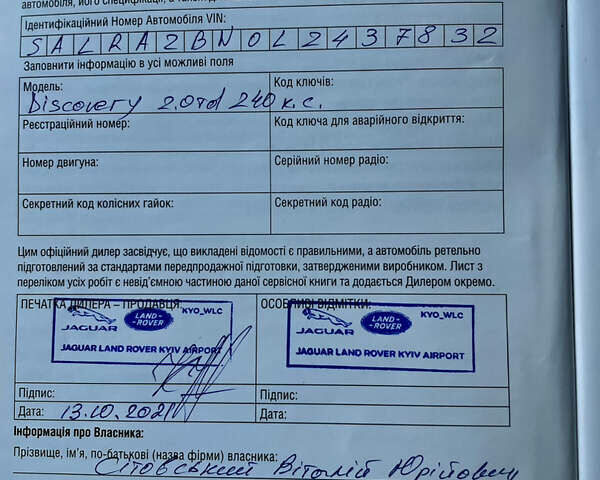 автомобіля, його специфікації, а також д
Ідентифікаційний Номер Автомобіля VIN:
SALRA2BN0L2437832
Заповнити інформацію в усі можливі поля
Модель:
Discovery 2.0td 240 к.с.
Код ключів:
Реєстраційний номер:
Код ключа для аварійного відкриття:
Номер двигуна:
Серійний номер радіо:
Секретний код колісних гайок:
Секретний код радіо:
Цим офіційний дилер засвідчує, що викладені відомості є правильними, а автомобіль ретельно
підготовлений за стандартами передпродажної підготовки, затвердженими виробником. Лист з
переліком усіх робіт є невід'ємною частиною даної сервісної книги та додається Дилером окремо.
ПЕЧАТКА ДИЛЕРА – ПРОДАВЦЯ:
JAGUAR
LAND-ROVER
KYO_WLC
JAGUAR LAND ROVER KYIV AIRPORT
ОСОБЛИВІ ВІДМІТКИ:
JAGUAR
LAND-ROVER
KYO_WLC
JAGUAR LAND ROVER KYIV AIRPORT
Підпис:
Підпис:
Дата: 13.10.2021
Дата:
Інформація про Власника:
Прізвище, ім'я, по-батькові (назва фірми) власника:
Сітовський Віталій Юрійович